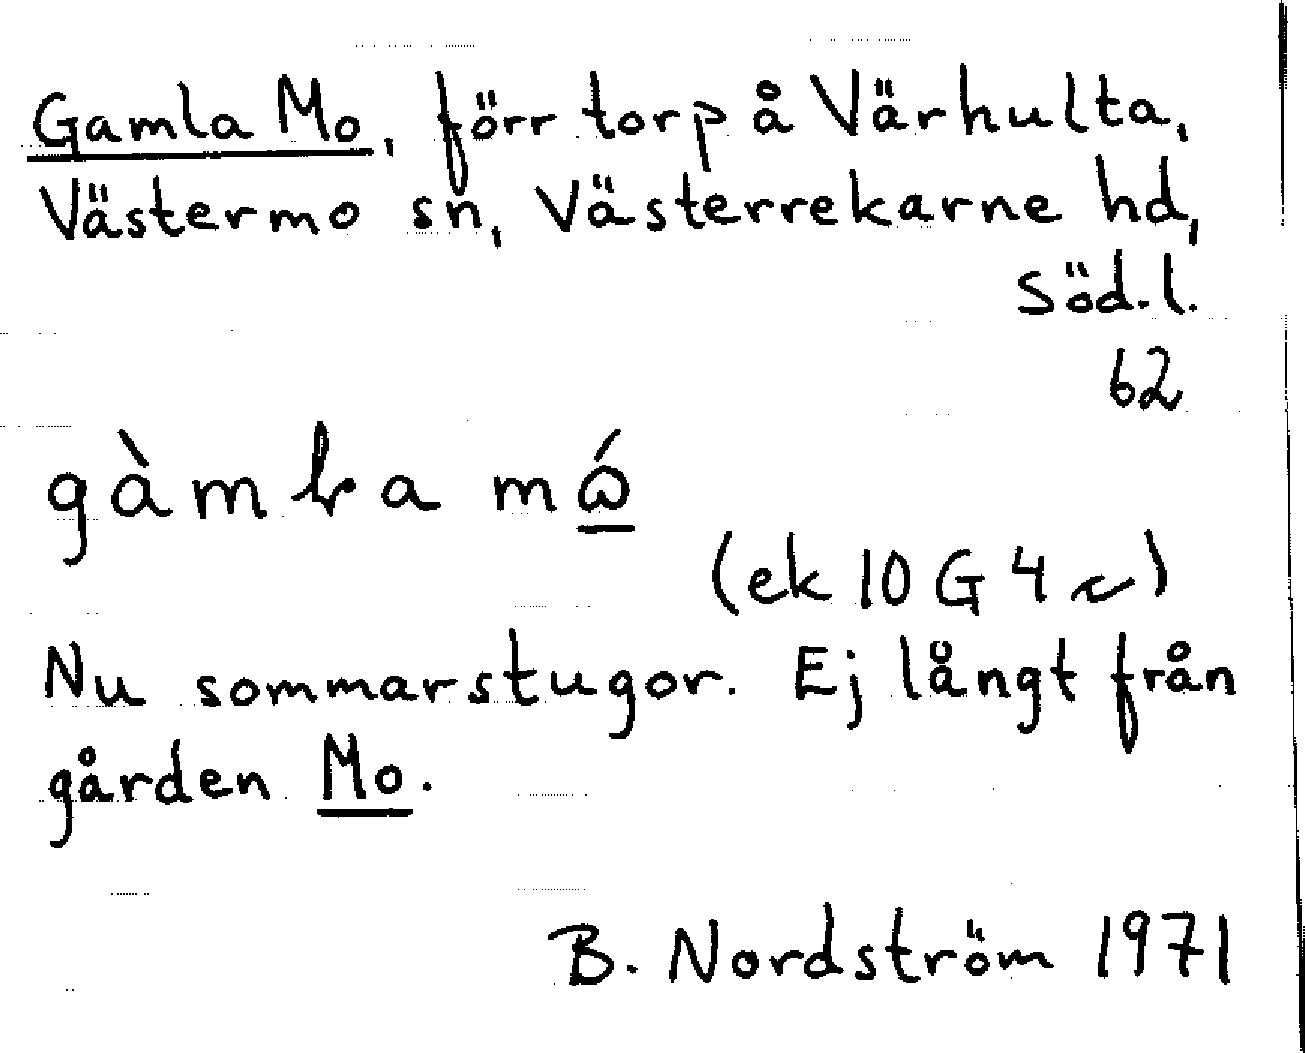 Gamla Mo, förr torp å Värhulta,
Västermo sn, Västerrekarne hd,
Söd.l.
62
(ek 10 G 4 c)
Nu sommarstugor. Ej långt från
gården Mo.
B. Nordström 1971